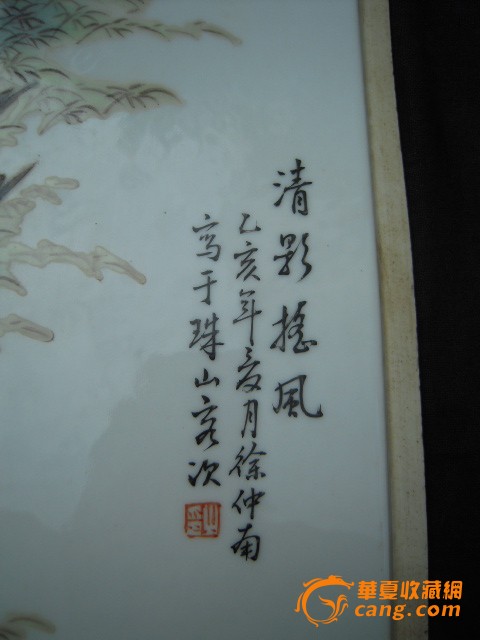 清影搖風
乙亥年夏月徐仲南
寫于珠山客次
華夏收藏網
cang.com